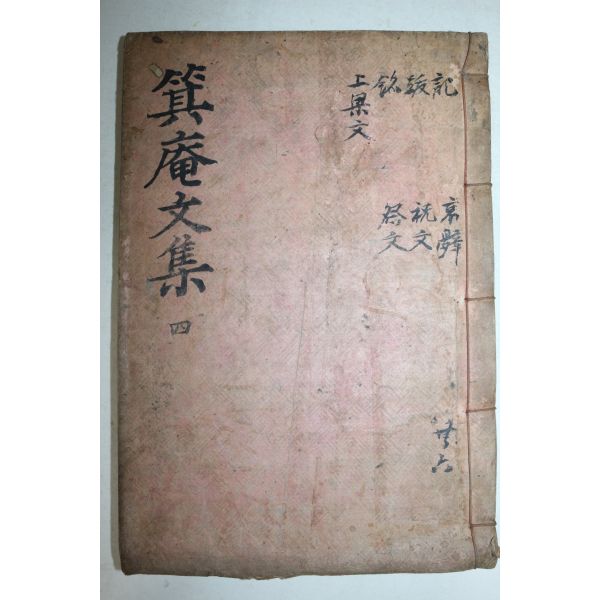 箕庵文集
四
記
跋
銘
上梁文
哀辭
祝文
祭文
共六